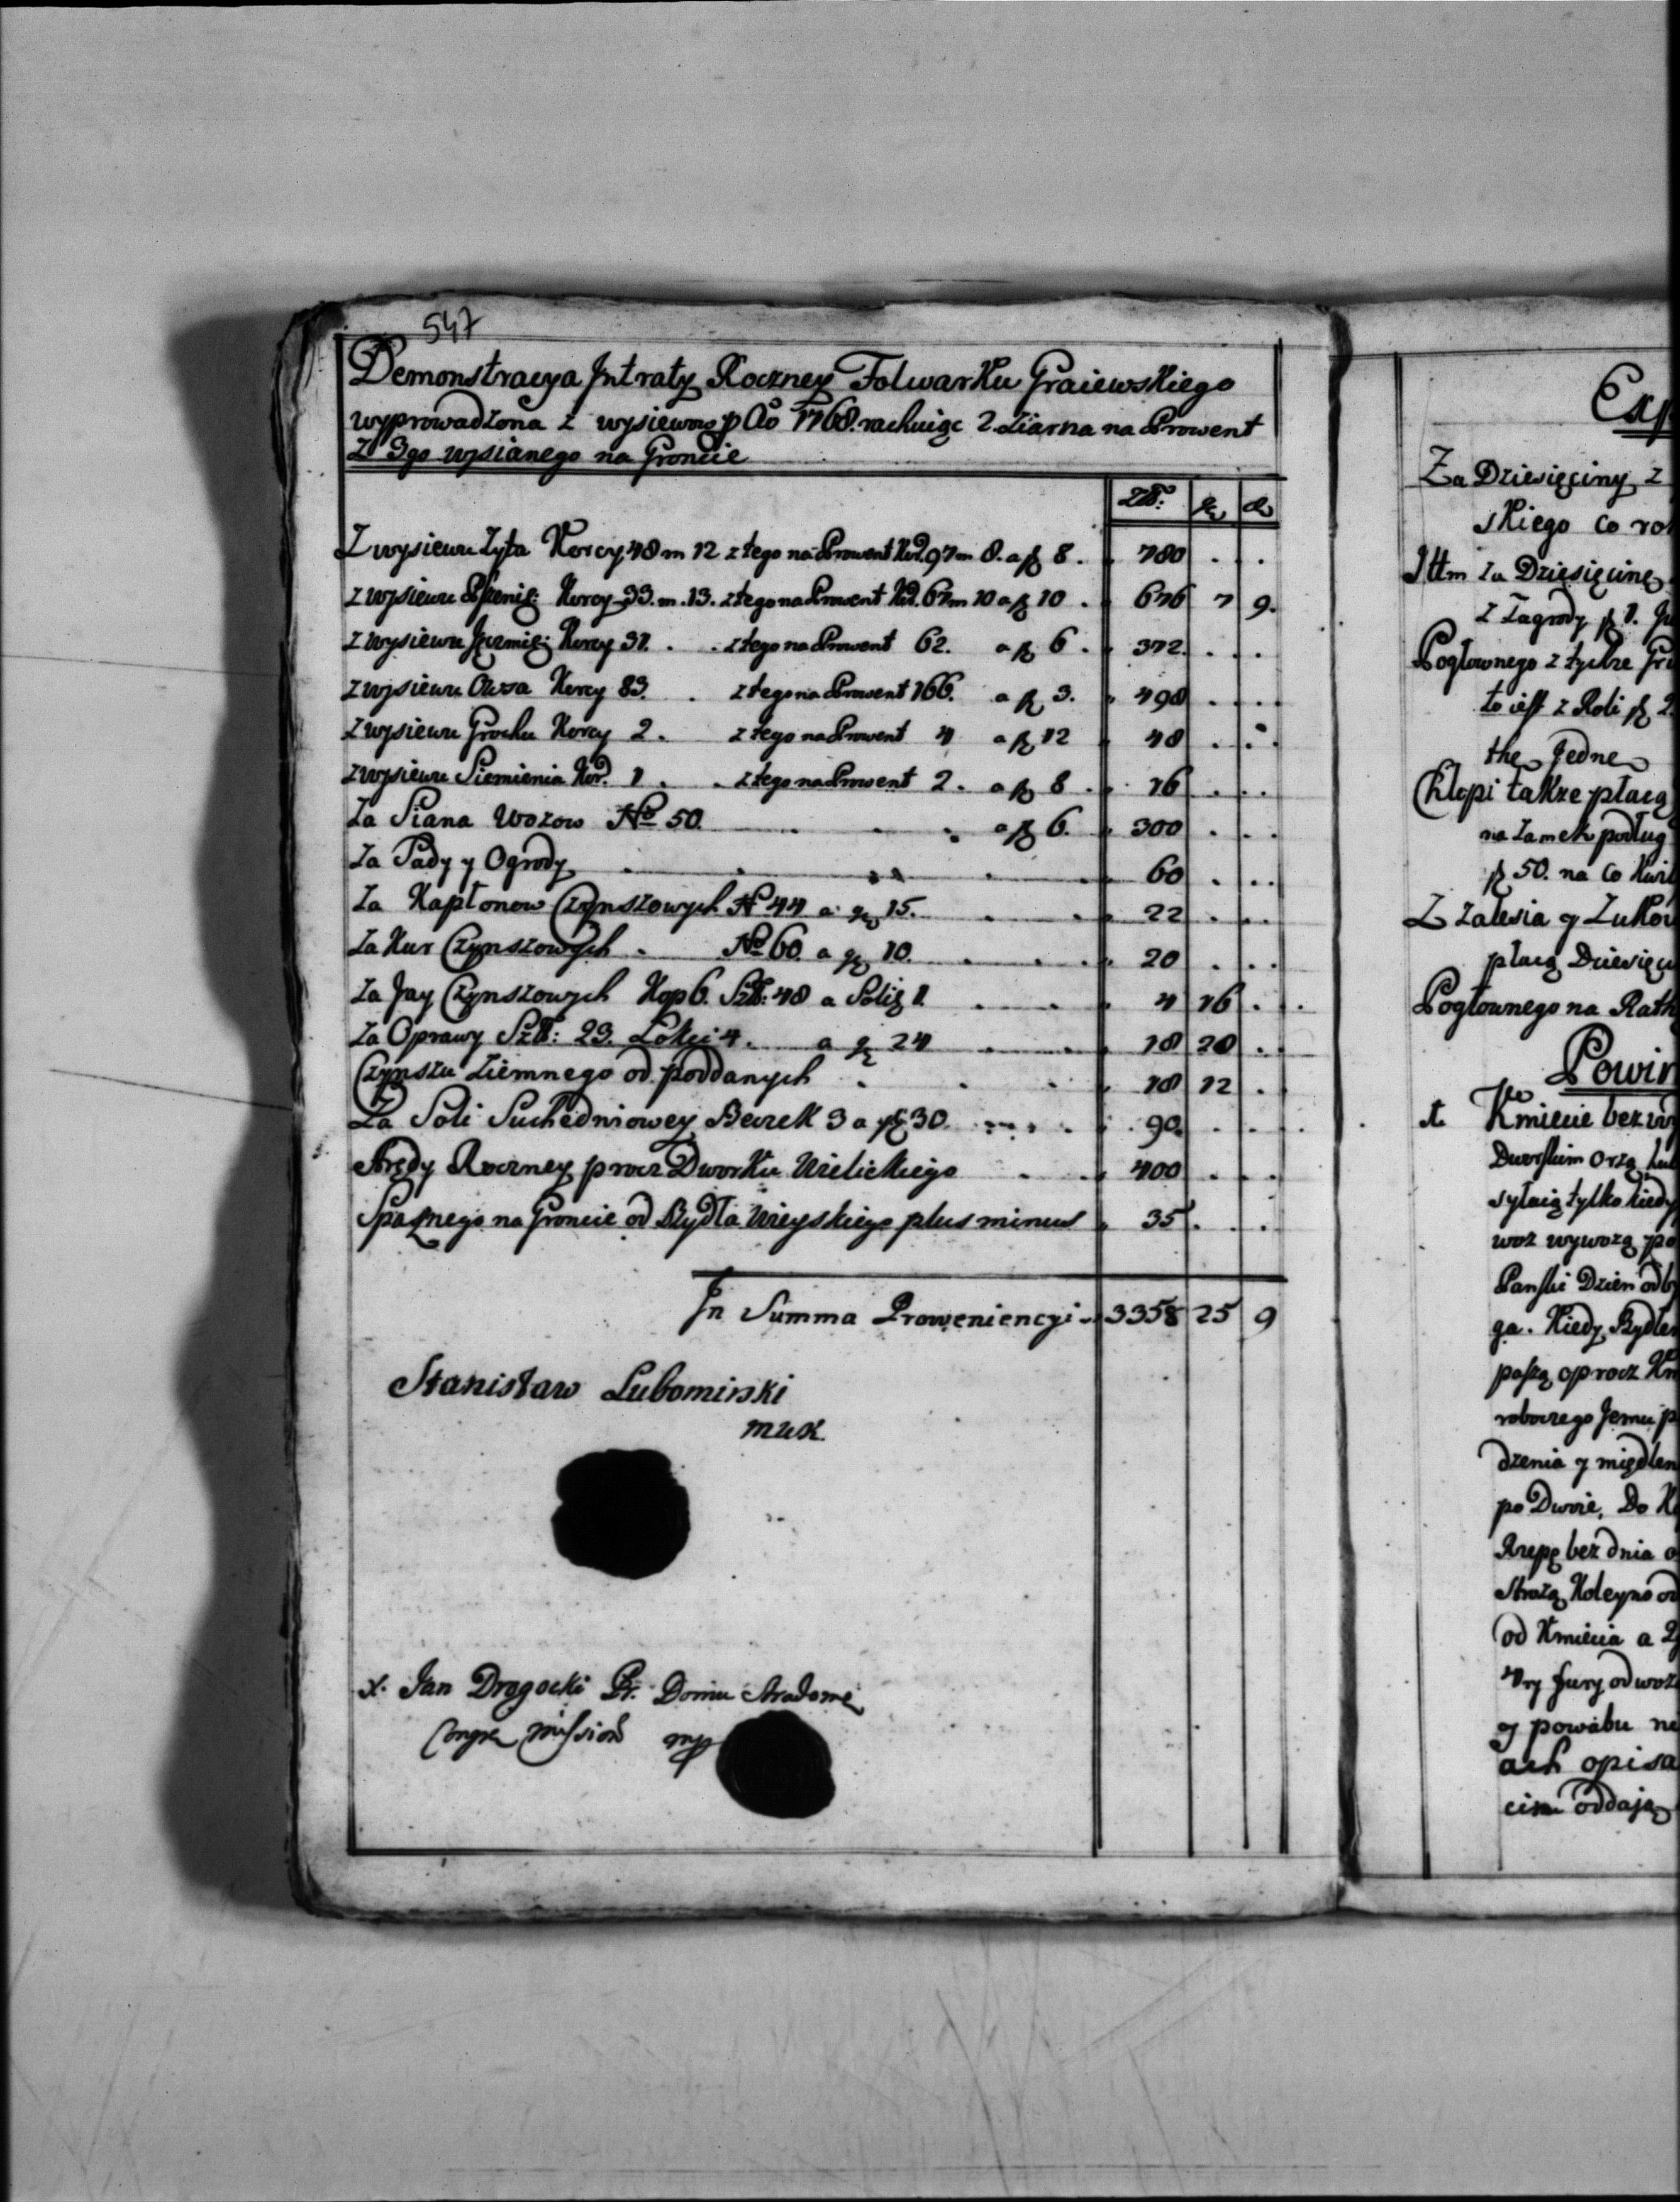 547
Demonstracya Jntraty Roczney Folwarku Graiewskiego
wyprowadzona z wysiewow p Aô 1768. rachuiąc 2. Ziarna na Prowent
z 3go wysianego na Groncie
Złł: gr d
Z wysiewu Żyta Korcy 48 m 12 z tego na Prowent Kor. 97 m 8. a fl 8. 780 . .
z wysiewu Pszenię: Korcy 33. m. 13. z tego na Prowent Kor. 67 m 10 a fl 10 . 676 7 9.
z wysiewu Jęczmię: Korcy 31. . . z tego na Prowent 62. a fl 6 . 372. . .
z wysiewu Owsa Korcy 83. . z tego na Prowent 166. a fl 3. 498 . .
z wysiewu Grochu Korcy 2. z tego na Prowent 4 a fl 12 48 . .
z wysiewu Siemienia Kor. 1 . . z tego na Prowent 2. a fl 8 . 16 . .
Za Siana Wozow No 50. . . . a fl 6. 300 . .
Za Sady y Ogrody . . . . 60 . .
Za Kapłonow Czynszowych No 44 a gr 15. . . 22 . .
Za Kur Czynszowych . No 60. a gr 10. . . . 20 . .
Za Jay Czynszowych Kop 6. Szt: 48 a Solig 1. . . . 4 16 .
Za Oprawy Szt: 23. Łokci 4. a gr 24 . . 18 20 .
Czynszu Ziemnego od poddanych . . . 18 12 .
Za Soli Suchedniowey Beczek 3 a fl 30. . . . . 90. . .
Arędy Roczney procz Dworku Wielickiego . . 400 . .
Spasnego na Groncie od Bydła Wieyskiego plus minus 35 . .
Jn Summa Proweniencyi 3358 25 9
Stanisław Lubomirski
mwk.
X. Jan Drogocki Pr. Domu Stradome
Congr Mission mp
Exp
Za Dziesięciny z
skiego co ro
Jttm za Dziesięcinę
z Zagrody fl 1.
Pogłownego z tychże Gr
to iest z Roli fl 2.
the Jedne
Chłopi także płacą
na Zamek podług
fl 50. na co Kwi
Z Zalesia y Łukow
płacą Dziesięci
Pogłownego na Rath
Powin
Kmiecie bez
Dworskim Orzą,
syłaią tylko kiedy
woz wywozą, po
Panski Dzien odb
ga. Kiedy Bydłem
paszą oprocz Km
roboczego Jemu p
dzenia y między
po Dwoie, Do K
Rzepę bez dnia o
Strozą Koleyno od
od Kmiecia a
4ry fury odwoz
y powabu
ach opisa
ciu oddają